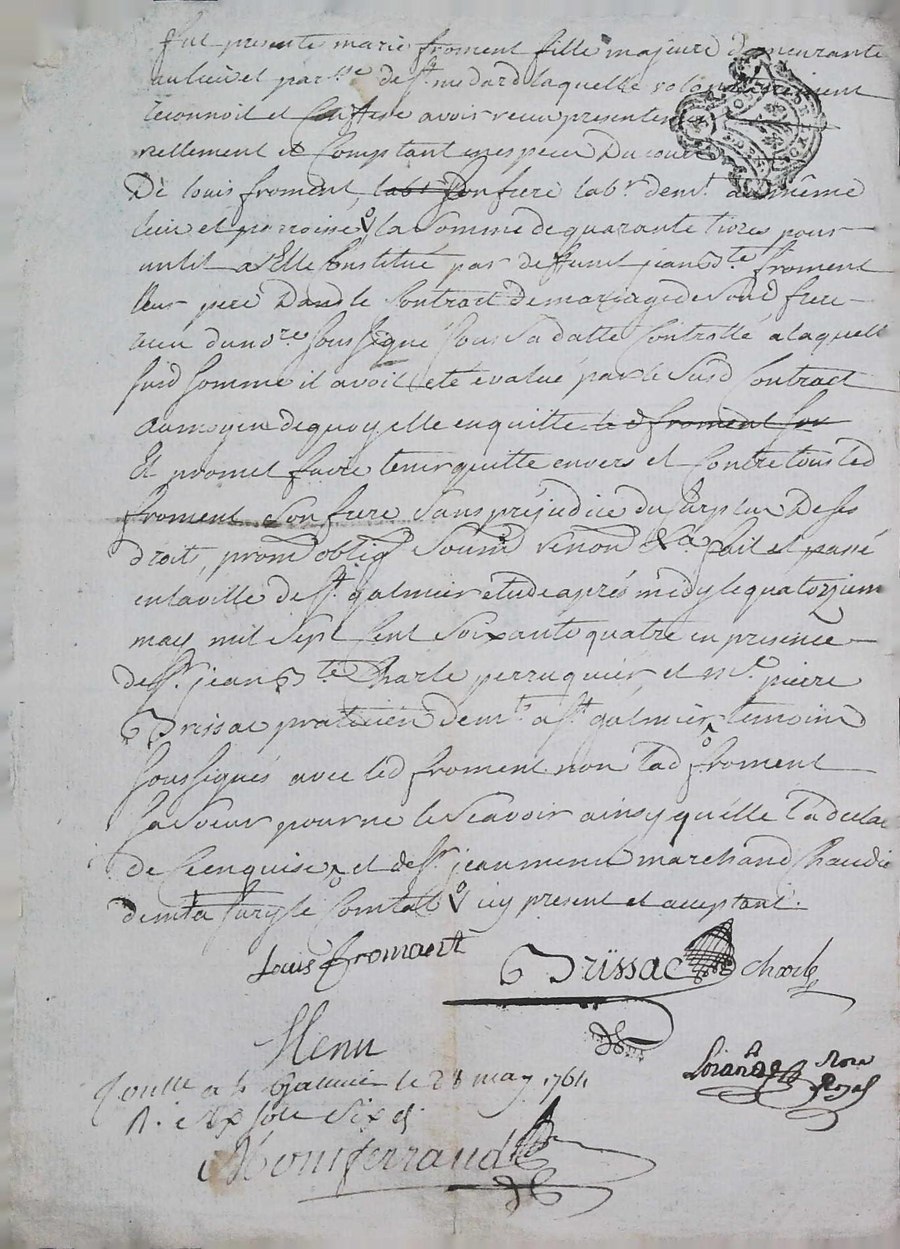 fut presente marie froment fille majeure demeurante
au lieu et par.sse de St medard laquelle volontairement
reconnoit et Confesse avoir recu presente
rellement et Comptant en especes Du cour
De Louis froment, son frere lab.r dem.t au même
lieu et parroisse la somme de quarante livres pour
un lit a Elle Constitué par deffunt jean B.te froment
leur pere Dans le Contract de mariage de son d frere
recu du no.re soussigné sous sa datte Controllé a laquelle
susd somme il avoit eté évalué par le susd Contract
au moyen de quoy elle en quitte led froment son
Et promet faire tenir quitte envers et Contre tous led
froment son frere sans préjudice du surplus De ses
droits, prom oblig soum renon &a fait et passé
en la ville de St galmier etude après midy le quatorzieme
may mil sept Cent soixante quatre en presence
de Sr. jean B.te Charle perruquier et M.e pierre
Brissac praticien dem.t a St galmier temoins
soussignés avec led froment non lad froment
sa soeur pour ne le scavoir ainsy qu'elle l'a declaré
de Ce enquise et de Sr jean menu marchand
dem.t a Sury le Comtal icy present et acceptant.
Louis fromant Brissac Charle
Menu
Nore
Royal
a St Galmier le 28 may 1764
R. sols six d.
Monferrand